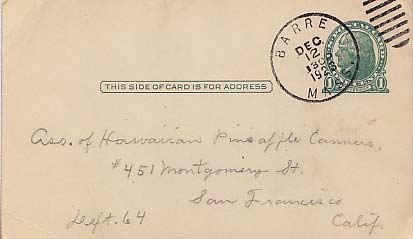 BARRE
DEC
12
MASS.
THIS SIDE OF CARD IS FOR ADDRESS
Ass. of Hawaiian Pineapple Canners,
#451 Montgomery St.
San Francisco
Dept. 64 Calif.